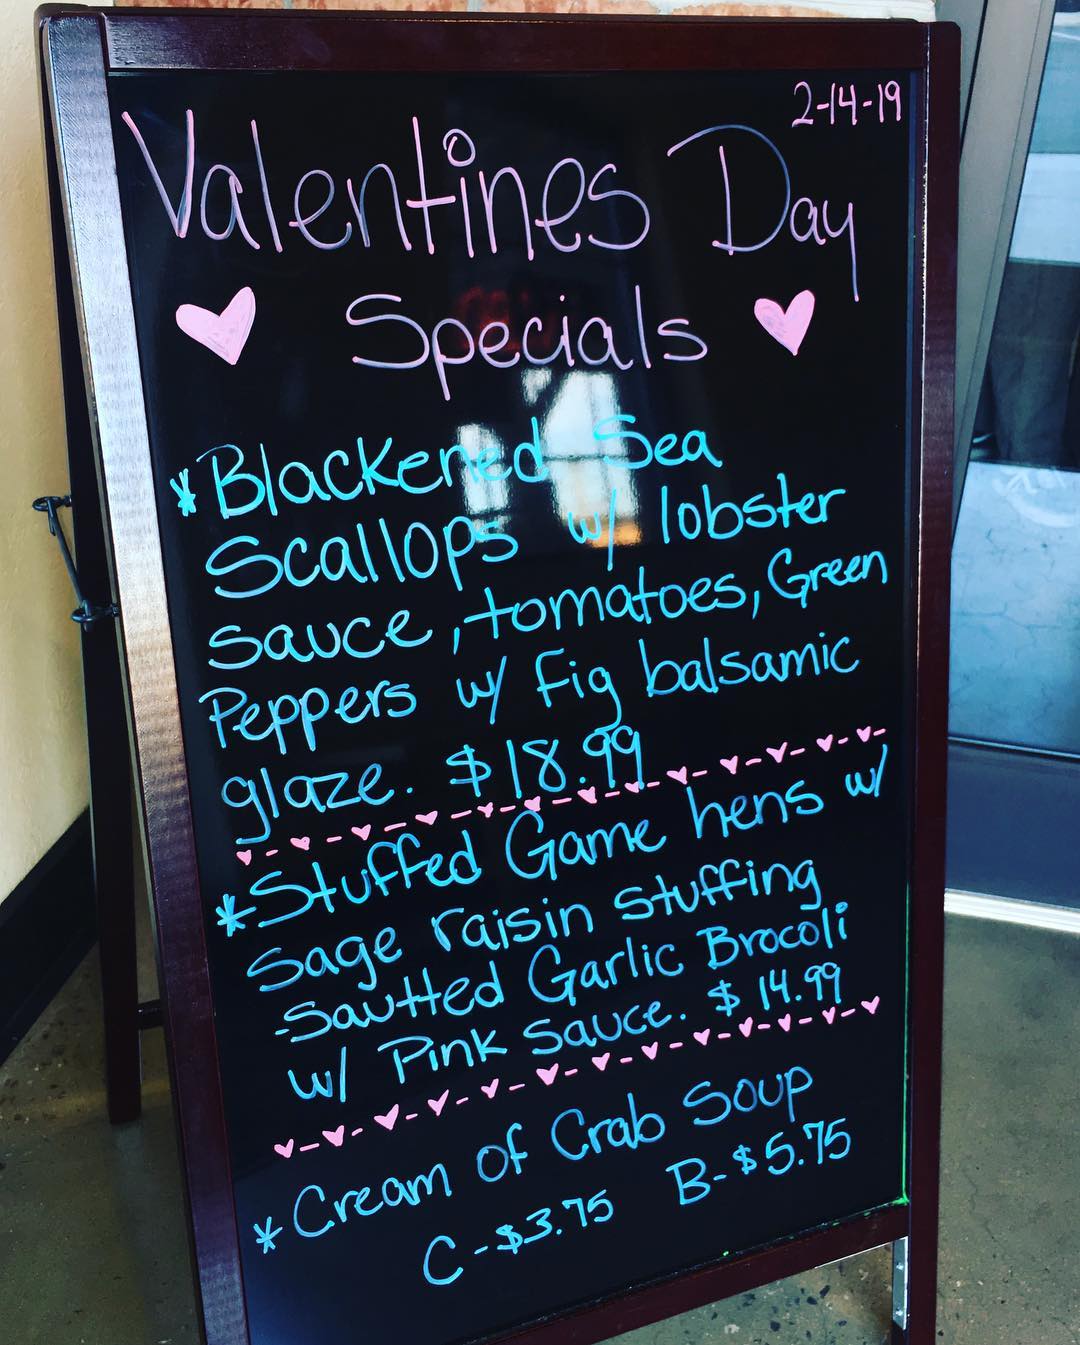 2-14-19
Valentines Day
Specials
*Blackened Sea
Scallops w/ lobster
sauce, tomatoes, Green
Peppers w/ fig balsamic
glaze. $18.99
*Stuffed Game hens w/
Sage raisin stuffing
-Sautted Garlic Brocoli
w/ Pink Sauce. $14.99
*Cream of Crab Soup
C-$3.75 B-$5.75